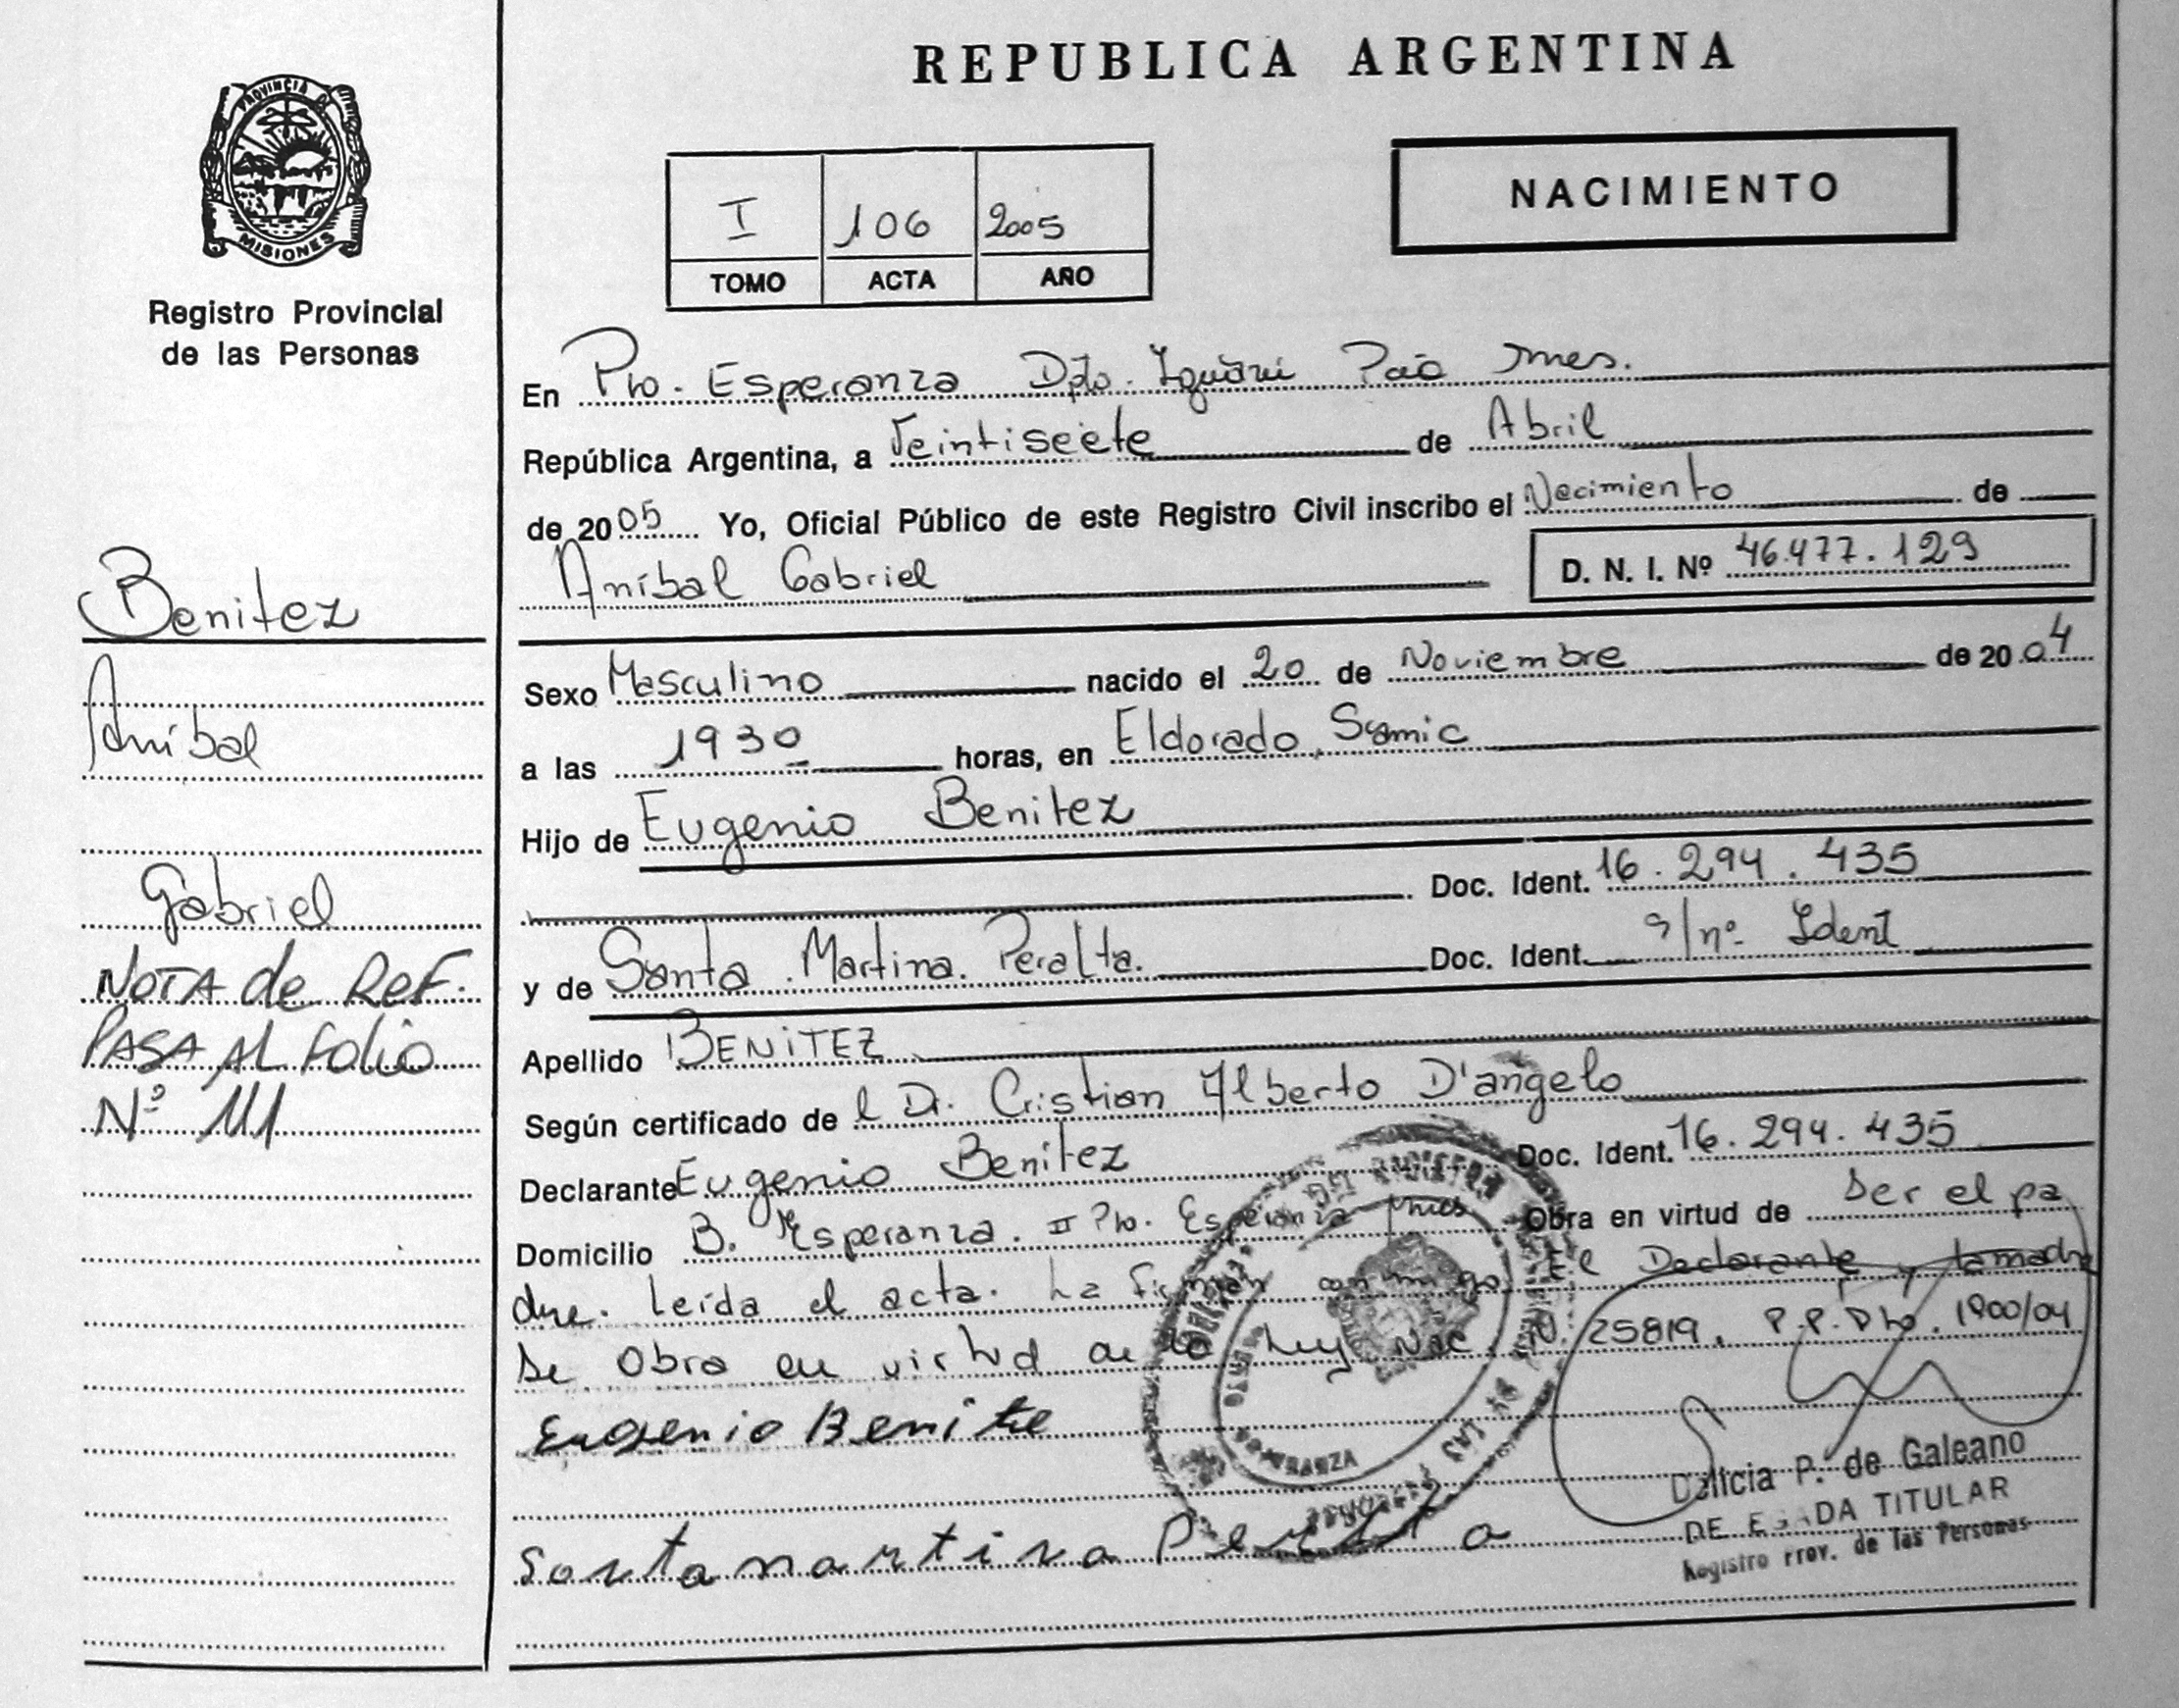 REPUBLICA ARGENTINA
PROVINCIA DE
MISIONES
Registro Provincial
de las Personas
NACIMIENTO
I 106 2005
TOMO ACTA AÑO
En Pto. Esperanza Dpto. Iguazú Pcia Mnes.
República Argentina, a Veintiseete de Abril
de 2005 Yo, Oficial Público de este Registro Civil inscribo el Nacimiento de
Aníbal Gabriel D. N. I. Nº 46.477.129
Benitez
Aníbal
Gabriel
NOTA de Ref.
PASA AL Folio
Nº 111
Sexo Masculino nacido el 20 de Noviembre de 2004
a las 1930 horas, en Eldorado Samic
Hijo de Eugenio Benitez
Doc. Ident. 16.294.435
y de Santa Martina Peralta. Doc. Ident. s/nº Ident
Apellido BENITEZ
Según certificado de l Dr. Cristian Alberto D'angelo
Declarante Eugenio Benitez Doc. Ident. 16.294.435
Domicilio B. Esperanza. II Pto. Esperanza Mnes Obra en virtud de Ser el pa
dre. Leída el acta. La firman conmigo El Declarante y la madre
Se Obra en virtud de la Ley Nac. Nº 25819. P.P. Dto. 1900/04
Eugenio Benite
Santa martina Peralta
Delicia P. de Galeano
DELEGADA TITULAR
Registro Prov. de las Personas